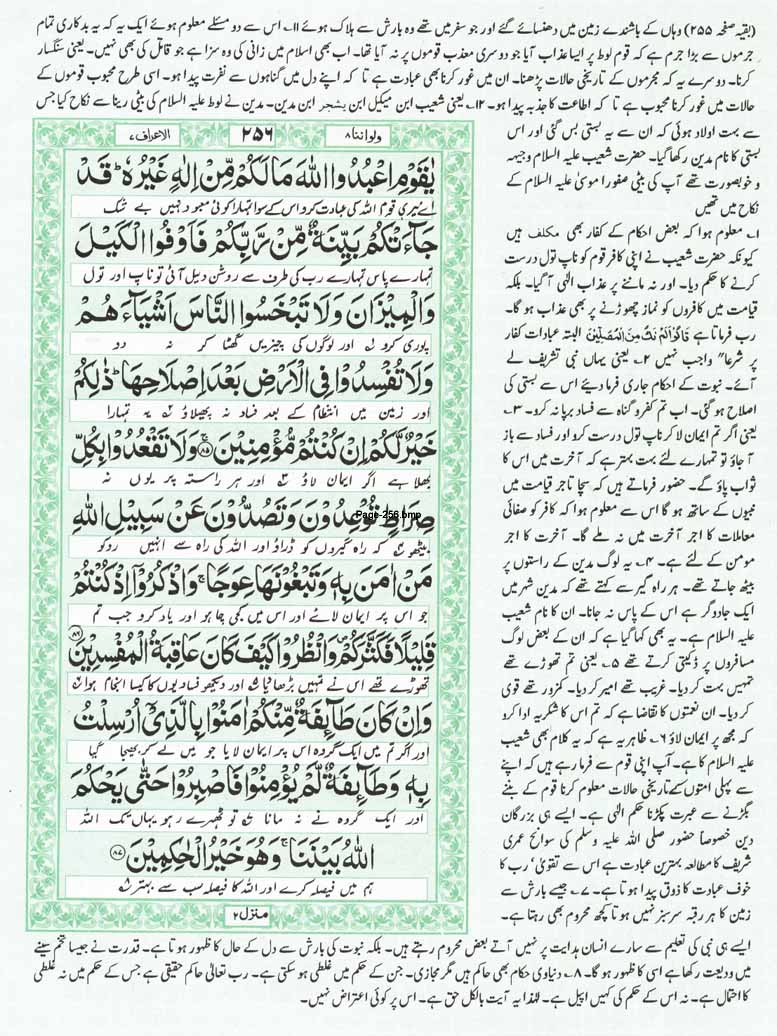 (بقیہ صفحہ ۲۵۵) وہاں کے باشندے زمین میں دھنسائے گئے اور جو سفر میں تھے وہ بارش سے ہلاک ہوئے ۱۱؎ اس سے دو مسئلے معلوم ہوئے ایک یہ کہ یہ بدکاری تمام
جرموں سے بڑا جرم ہے کہ قوم لوط پر ایسا عذاب آیا جو دوسری معذب قوموں پر نہ آیا تھا۔ اب بھی اسلام میں زانی کی وہ سزا ہے جو قاتل کی بھی نہیں۔ یعنی سنگسار
کرنا۔ دوسرے یہ کہ مجرموں کے تاریخی حالات پڑھنا۔ ان میں غور کرنا بھی عبادت ہے تا کہ اپنے دل میں گناہوں سے نفرت پیدا ہو۔ اسی طرح محبوب قوموں کے
حالات میں غور کرنا محبوب ہے تا کہ اطاعت کا جذبہ پیدا ہو۔ ۱۲؎ یعنی شعیب ابن میکیل ابن یشجر ابن مدین۔ مدین نے لوط علیہ السلام کی بیٹی ریتا سے نکاح کیا جس
سے بہت اولاد ہوئی کہ ان سے یہ بستی بس گئی اور اس
بستی کا نام مدین رکھا گیا۔ حضرت شعیب علیہ السلام وجیہہ
و خوبصورت تھے آپ کی بیٹی صفورا موسیٰ علیہ السلام کے
نکاح میں تھیں
۱؎ معلوم ہوا کہ بعض احکام کے کفار بھی مکلف ہیں
کیونکہ حضرت شعیب نے اپنی کافر قوم کو ناپ تول درست
کرنے کا حکم دیا۔ اور نہ ماننے پر عذاب الٰہی آگیا۔ بلکہ
قیامت میں کافروں کو نماز چھوڑنے پر بھی عذاب ہو گا۔
رب فرماتا ہے قَالُوْا لَمْ نَكُ مِنَ الْمُصَلِّيْنَ البتہ عبادات کفار
پر شرعاً واجب نہیں ۲؎ یعنی یہاں نبی تشریف لے
آئے۔ نبوت کے احکام جاری فرما دیئے اس سے بستی کی
اصلاح ہو گئی۔ اب تم کفر و گناہ سے فساد برپا نہ کرو۔ ۳؎
یعنی اگر تم ایمان لا کر ناپ تول درست کرو اور فساد سے باز
آ جاؤ تو تمہارے لئے بہت بہتر ہے کہ آخرت میں اس کا
ثواب پاؤ گے۔ حضور فرماتے ہیں کہ سچا تاجر قیامت میں
نبیوں کے ساتھ ہو گا اس سے معلوم ہوا کہ کافر کو صفائی
معاملات کا اجر آخرت میں نہ ملے گا۔ آخرت کا اجر
مومن کے لئے ہے۔ ۴؎ یہ لوگ مدین کے راستوں پر
بیٹھ جاتے تھے۔ ہر راہ گیر سے کہتے تھے کہ مدین شہر میں
ایک جادوگر ہے اس کے پاس نہ جانا۔ ان کا نام شعیب
علیہ السلام ہے۔ یہ بھی کہا گیا ہے کہ ان کے بعض لوگ
مسافروں پر ڈکیتی کرتے تھے ۵؎ یعنی تم تھوڑے تھے
تمہیں بہت کر دیا۔ غریب تھے امیر کر دیا۔ کمزور تھے قوی
کر دیا۔ ان نعمتوں کا تقاضا ہے کہ تم اس کا شکریہ ادا کرو
کہ مجھ پر ایمان لاؤ ۶؎ ظاہر یہ ہے کہ یہ کلام بھی شعیب
علیہ السلام کا ہے۔ آپ اپنی قوم سے فرما رہے ہیں کہ اپنے
سے پہلی امتوں کے تاریخی حالات معلوم کرنا قوم کے بننے
بگڑنے سے عبرت پکڑنا حکم الٰہی ہے۔ ایسے ہی بزرگان
دین خصوصاً حضور صلی اللہ علیہ وسلم کی سوانح عمری
شریف کا مطالعہ بہترین عبادت ہے اس سے تقویٰ، رب کا
خوف عبادت کا ذوق پیدا ہوتا ہے۔ ۷؎ جیسے بارش سے
زمین کا ہر رقبہ سرسبز نہیں ہوتا کچھ محروم بھی رہتا ہے۔
واواننا ۸ ۲۵۶ الاعراف ۷
يٰقَوْمِ اعْبُدُوا اللّٰهَ مَا لَكُمْ مِّنْ اِلٰهٍ غَيْرُهٗ ۚ قَدْ
اے میری قوم اللہ کی عبادت کرو اس کے سوا تمہارا کوئی معبود نہیں بے شک
جَآءَتْكُمْ بَيِّنَةٌ مِّنْ رَّبِّكُمْ فَاَوْفُوا الْكَيْلَ
تمہارے پاس تمہارے رب کی طرف سے روشن دلیل آئی تو ناپ اور تول
وَالْمِيْزَانَ وَلَا تَبْخَسُوا النَّاسَ اَشْيَآءَهُمْ
پوری کرو ۱؎ اور لوگوں کی چیزیں گھٹا کر نہ دو
وَلَا تُفْسِدُوْا فِى الْاَرْضِ بَعْدَ اِصْلَاحِهَا ؕ ذٰلِكُمْ
اور زمین میں انتظام کے بعد فساد نہ پھیلاؤ ۲؎ یہ تمہارا
خَيْرٌ لَّكُمْ اِنْ كُنْتُمْ مُّؤْمِنِيْنَ ۝۸۵ وَلَا تَقْعُدُوْا بِكُلِّ
بھلا ہے اگر ایمان لاؤ ۳؎ اور ہر راستہ پر یوں نہ
صِرَاطٍ تُوْعِدُوْنَ وَتَصُدُّوْنَ عَنْ سَبِيْلِ اللّٰهِ
Page-256.bmp
بیٹھو ۴؎ کہ راہ گیروں کو ڈراؤ اور اللہ کی راہ سے انہیں روکو
مَنْ اٰمَنَ بِهٖ وَتَبْغُوْنَهَا عِوَجًا ۚ وَاذْكُرُوْٓا اِذْ كُنْتُمْ
جو اس پر ایمان لائے اور اس میں کجی چاہو اور یاد کرو جب تم
قَلِيْلًا فَكَثَّرَكُمْ ۪ وَانْظُرُوْا كَيْفَ كَانَ عَاقِبَةُ الْمُفْسِدِيْنَ ۝۸۶
تھوڑے تھے اس نے تمہیں بڑھا دیا ۵؎ اور دیکھو فسادیوں کا کیسا انجام ہوا ۶؎
وَاِنْ كَانَ طَآئِفَةٌ مِّنْكُمْ اٰمَنُوْا بِالَّذِىْٓ اُرْسِلْتُ
اور اگر تم میں ایک گروہ اس پر ایمان لایا جو میں لے کر بھیجا گیا
بِهٖ وَطَآئِفَةٌ لَّمْ يُؤْمِنُوْا فَاصْبِرُوْا حَتّٰى يَحْكُمَ
اور ایک گروہ نے نہ مانا ۷؎ تو ٹھہرے رہو یہاں تک اللہ
اللّٰهُ بَيْنَنَا ۚ وَهُوَ خَيْرُ الْحٰكِمِيْنَ ۝۸۷
ہم میں فیصلہ کرے اور اللہ کا فیصلہ سب سے بہتر ۸؎
منزل ۲
ایسے ہی نبی کی تعلیم سے سارے انسان ہدایت پر نہیں آتے بعض محروم رہتے ہیں۔ بلکہ نبوت کی بارش سے دل کے حال کا ظہور ہوتا ہے۔ قدرت نے جیسا تخم سینے
میں ودیعت رکھا ہے اسی کا ظہور ہو گا۔ ۸؎ دنیاوی حکام بھی حاکم ہیں مگر مجازی۔ جن کے حکم میں غلطی ہو سکتی ہے۔ رب تعالیٰ حاکم حقیقی ہے جس کے حکم میں نہ غلطی
کا احتمال ہے۔ نہ اس کے حکم کی کہیں اپیل ہے۔ لہٰذا یہ آیت بالکل حق ہے۔ اس پر کوئی اعتراض نہیں۔